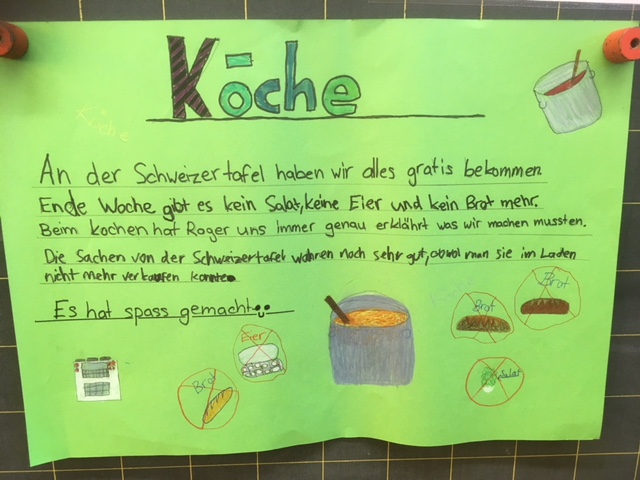 Köche
Köche
An der Schweizertafel haben wir alles gratis bekommen.
Ende Woche gibt es kein Salat, keine Eier und kein Brot mehr.
Beim kochen hat Roger uns immer genau erklährt was wir machen mussten.
Die Sachen von der Schweizertafel wahren noch sehr gut, obwol man sie im Laden
nicht mehr verkaufen konnte
Es hat spass gemacht
Brot
Brot
Eier
Brot
Salat